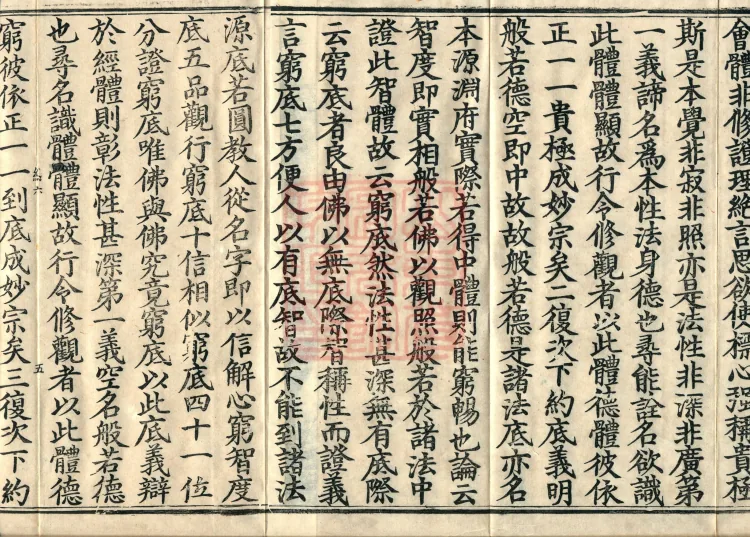 會體非修證理絕言思欲傳標心理稱貴極
斯是本覺非寂非照亦是法性非深非廣第
一義諦名爲本性法身德也尋能詮名欲識
此體體顯故行令修觀者以此體德體彼依
正一一貴極成妙宗矣二復次下約底義明
般若德空即中故故般若德是諸法底亦名
本源淵府實際若得中體則能窮暢也論云
智度即實相般若佛以觀照般若於諸法中
證此智體故云窮底然法性甚深無有底際
云窮底者良由佛以無底際智稱性而證義
言窮底七方便人以有底智故不能到諸法
源底若圓教人從名字即以信解心窮智度
底五品觀行窮底十信相似窮底四十一位
分證窮底唯佛與佛究竟窮底以此底義辯
於經體則彰法性甚深第一義空名般若德
也尋名識體體顯故行令修觀者以此體德
窮彼依正一一到底成妙宗矣三復次下約
五